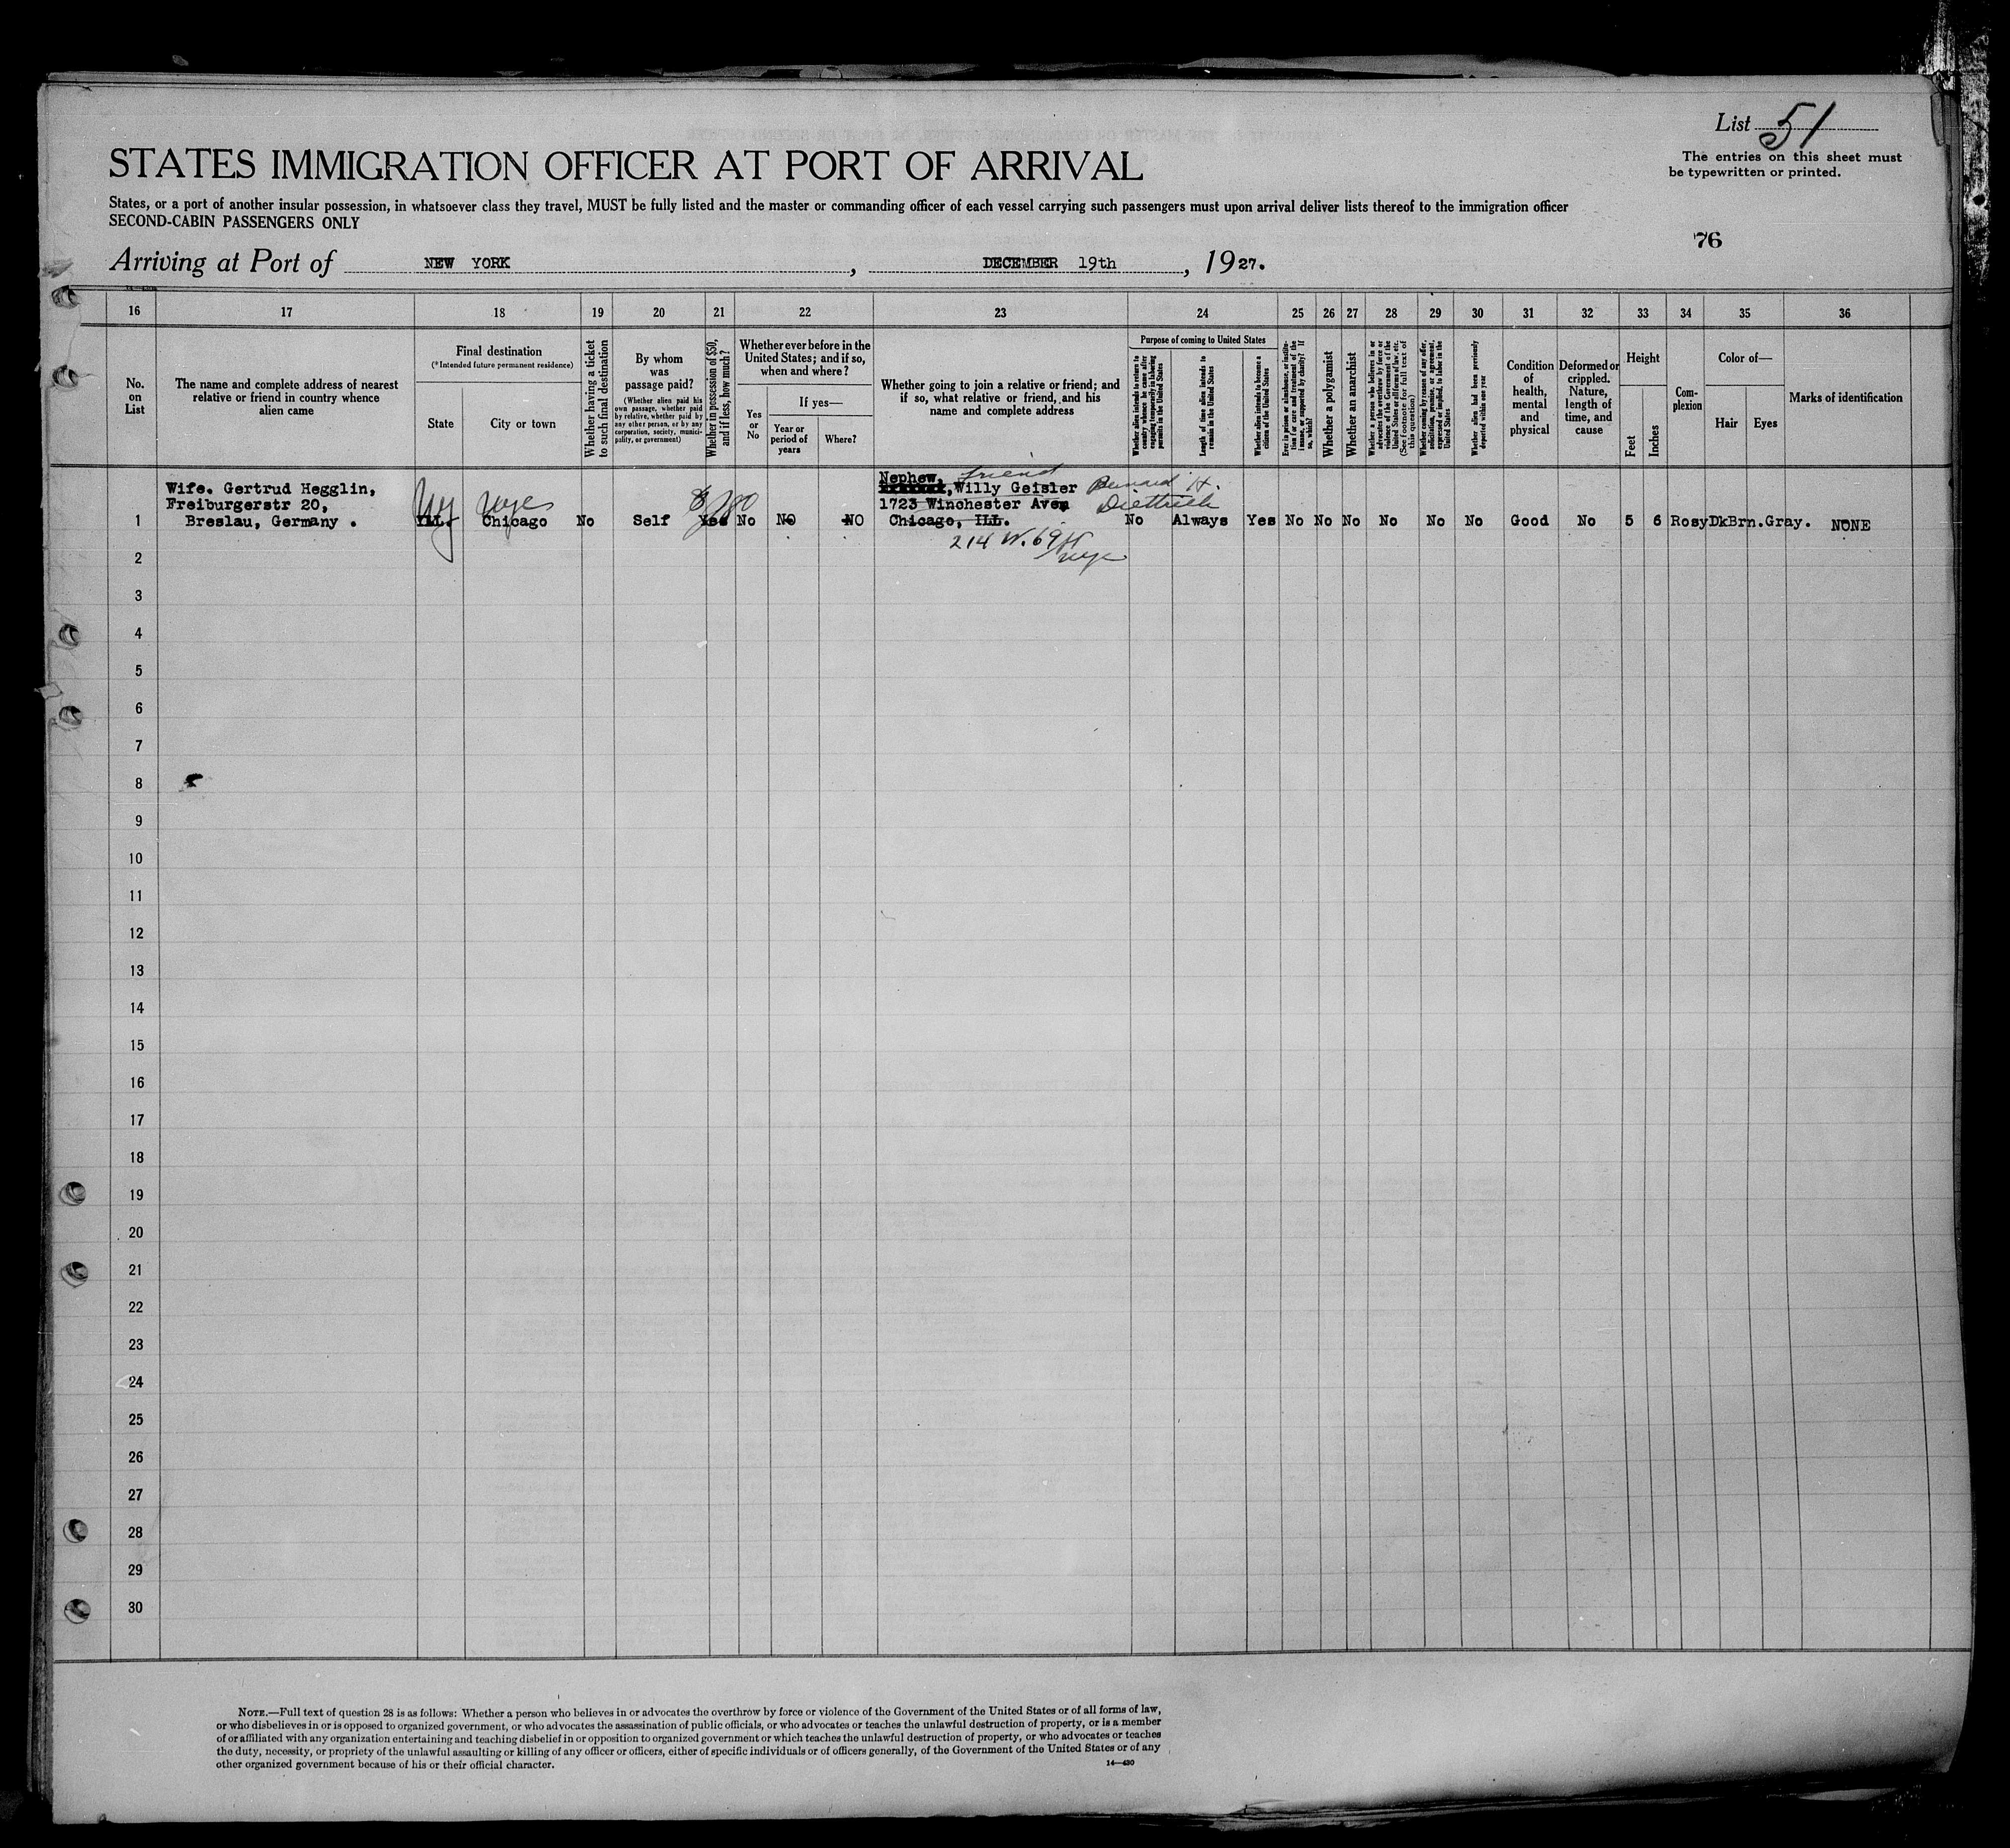 List 51
The entries on this sheet must
be typewritten or printed.
STATES IMMIGRATION OFFICER AT PORT OF ARRIVAL
States, or a port of another insular possession, in whatsoever class they travel, MUST be fully listed and the master or commanding officer of each vessel carrying such passengers must upon arrival deliver lists thereof to the immigration officer
SECOND-CABIN PASSENGERS ONLY
76
Arriving at Port of NEW YORK, DECEMBER 19th, 1927.
16 17 18 19 20 21 22 23 24 25 26 27 28 29 30 31 32 33 34 35 36
No.
on
List
The name and complete address of nearest
relative or friend in country whence
alien came
Final destination
(*Intended future permanent residence)
State
City or town
Whether having a ticket
to such final destination
By whom
was
passage paid?
(Whether alien paid his
own passage, whether paid
by relative, whether paid by
any other person, or by any
corporation, society, munici-
pality, or government)
Whether in possession of $50,
and if less, how much?
Whether ever before in the
United States; and if so,
when and where?
Yes
or
No
If yes—
Year or
period of
years
Where?
Whether going to join a relative or friend; and
if so, what relative or friend, and his
name and complete address
Purpose of coming to United States
Whether alien intends to return to
country whence he came after
engaging temporarily in laboring
pursuits in the United States
Length of time alien intends to
remain in the United States
Whether alien intends to become a
citizen of the United States
Ever in prison or almshouse, or institu-
tion for care and treatment of the
insane, or supported by charity? If
so, which?
Whether a polygamist
Whether an anarchist
Whether a person who believes in or
advocates the overthrow by force or
violence of the Government of the
United States or all forms of law, etc.
(See footnote for full text of
this question)
Whether coming by reason of any offer,
solicitation, promise, or agreement,
expressed or implied, to labor in the
United States
Whether alien had been previously
deported within one year
Condition
of
health,
mental
and
physical
Deformed or
crippled.
Nature,
length of
time, and
cause
Height
Feet
Inches
Com-
plexion
Color of—
Hair
Eyes
Marks of identification
Wife. Gertrud Hegglin,
Freiburgerstr 20,
Breslau, Germany .
NY nyc
$780
Nephew, friend
Willy Geisler Bernard H.
1723 Winchester Ave. Diettrich
Chicago, ILL.
214 W. 69 St
nyc
1 ILL. Chicago No Self Yes No NO NO No Always Yes No No No No No No Good No 5 6 Rosy DkBrn. Gray. NONE
2
3
4
5
6
7
8
9
10
11
12
13
14
15
16
17
18
19
20
21
22
23
24
25
26
27
28
29
30
NOTE.—Full text of question 28 is as follows: Whether a person who believes in or advocates the overthrow by force or violence of the Government of the United States or of all forms of law,
or who disbelieves in or is opposed to organized government, or who advocates the assassination of public officials, or who advocates or teaches the unlawful destruction of property, or is a member
of or affiliated with any organization entertaining and teaching disbelief in or opposition to organized government or which teaches the unlawful destruction of property, or who advocates or teaches
the duty, necessity, or propriety of the unlawful assaulting or killing of any officer or officers, either of specific individuals or of officers generally, of the Government of the United States or of any
other organized government because of his or their official character.
14—430